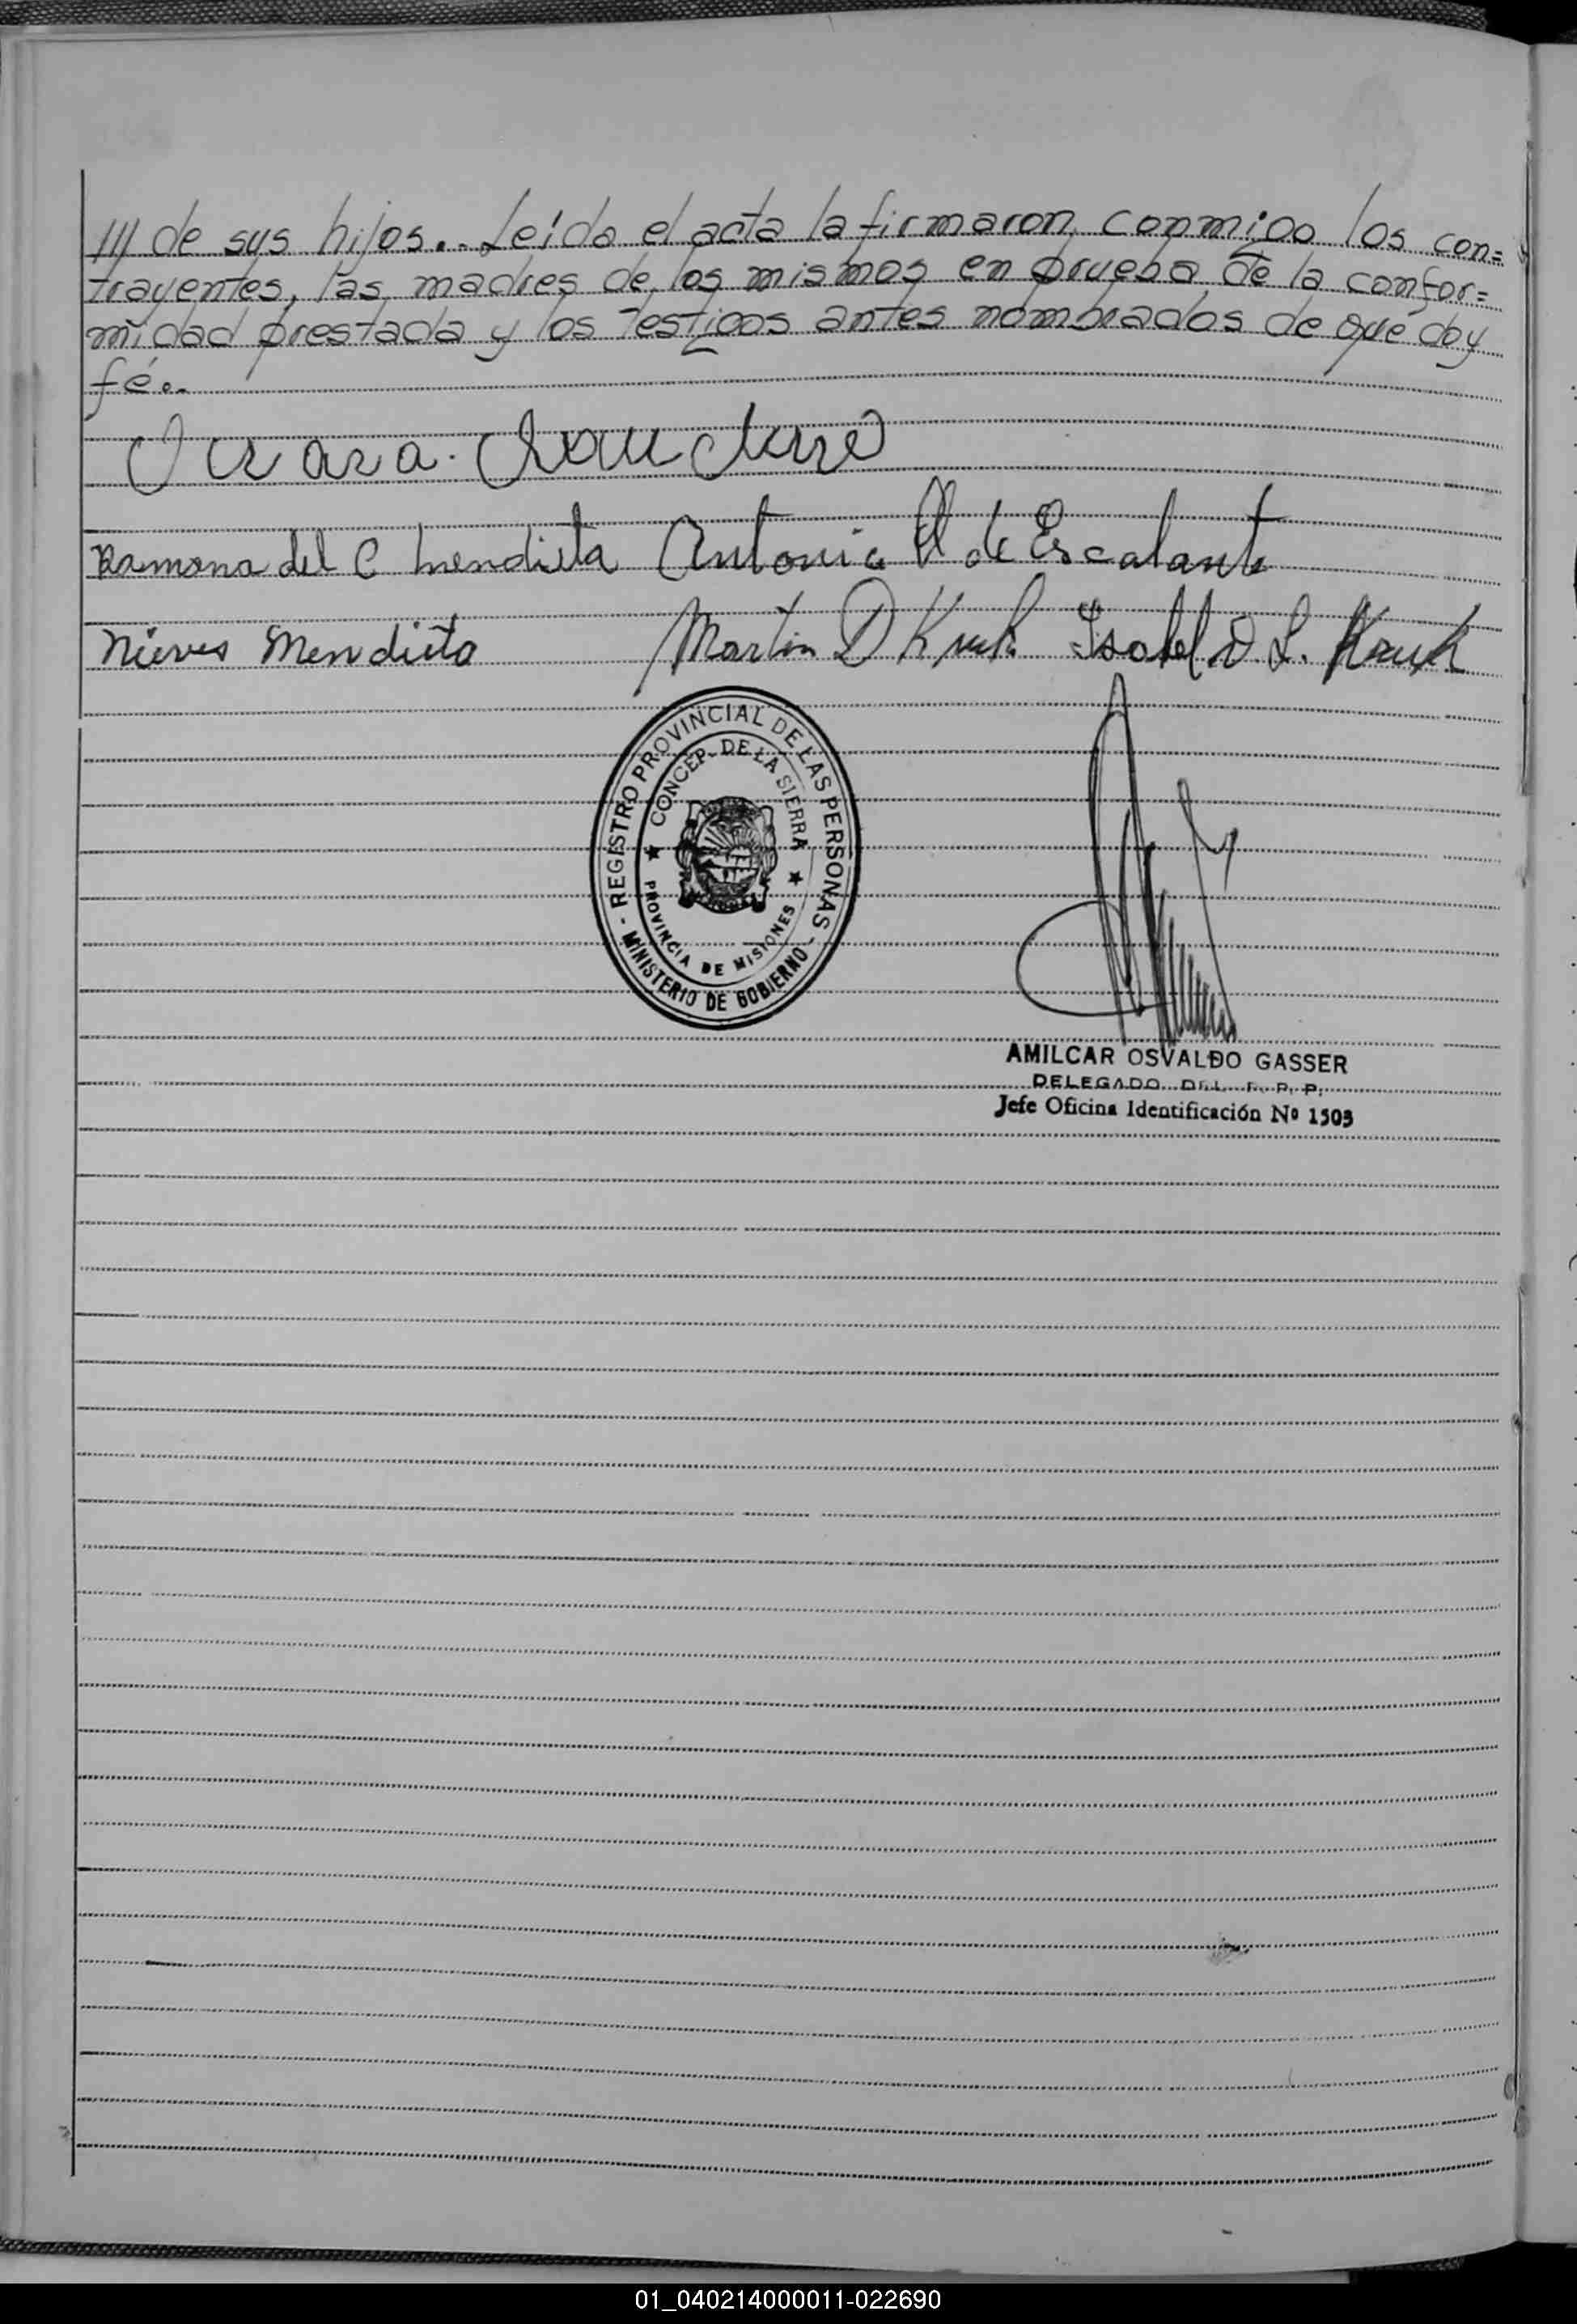 /// de sus hijos.. Leída el acta la firmaron conmigo los con=
trayentes, las madres de los mismos en prueba de la confor=
midad prestada y los testigos antes nombrados de que doy
fé..
Ramona del C Mendieta Antonia de Escalante
Nieves Mendieta Martin D Kruk Isabel D. L. Kruk
- REGISTRO PROVINCIAL DE LAS PERSONAS -
MINISTERIO DE GOBIERNO
★ CONCEP. DE LA SIERRA ★
PROVINCIA DE MISIONES
AMILCAR OSVALDO GASSER
DELEGADO DEL R. P. P.
Jefe Oficina Identificación Nº 1503
01_040214000011-022690